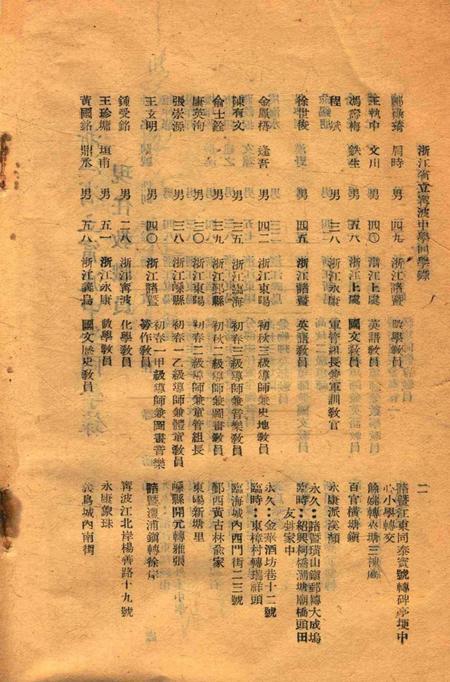 浙江省立寧波中學同學錄
二
周時 男 四九 浙江諸暨 數學教員 諸暨江東同泰寶號轉碑亭埂中心小學轉交
王執中 文川 男 四〇 浙江上虞 英語教員 餘姚轉
馮壽梅 鉄生 男 五六 浙江上虞 國文教員 百官橫塘鎮
程斌 男 三八 浙江永康 軍管組長兼軍訓教官 永康派溪頭
徐世俊 男 四五 浙江諸暨 英語教員 永久:諸暨璜山鎮郵轉大成塢 臨時:紹興柯橋湖塘廟橋頭田
金鳳梧 逢吾 男 四二 浙江東陽 初秋三級導師兼史地教員 永久:金華酒坊巷十二號 臨時:東樟村轉瑞祥頭
陳有文 男 三五 浙江臨海 初春三級導師兼音樂教員 臨海城內西門街二三號
俞士銓 男 三九 浙江鄞縣 初秋二級導師兼圖畫教員 鄞西黃古林俞家
唐英洵 男 三〇 浙江東陽 初春二級導師兼童管組長 東陽新塘里
張崇源 男 三八 浙江嵊縣 初春一乙級導師兼體童教員 嵊縣開元轉雅張
王玄明 男 四〇 浙江諸暨 初春一甲級導師兼圖畫音樂勞作教員 諸暨澧浦鎮轉徐岸
鍾受銘 男 二八 浙江寧波 化學教員 寧波江北岸楊善路十九號
王珍塘 垣甫 男 五一 浙江永康 數學教員 永康象珠
黃國銘 鼎丞 男 五八 浙江義烏 國文歷史教員 義烏城內南街